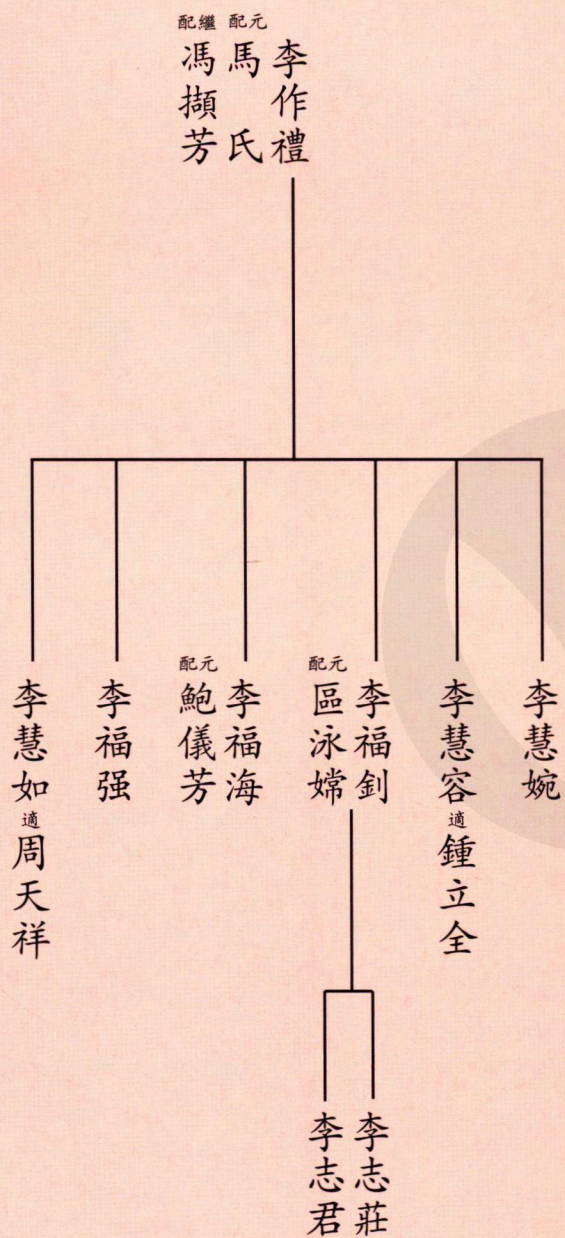 李作禮
元配
馬氏
繼配
馮擷芳
李慧婉
李慧容適鍾立全
李福釗
元配
區泳嫦
李福海
元配
鮑儀芳
李福强
李慧如適周天祥
李志莊
李志君